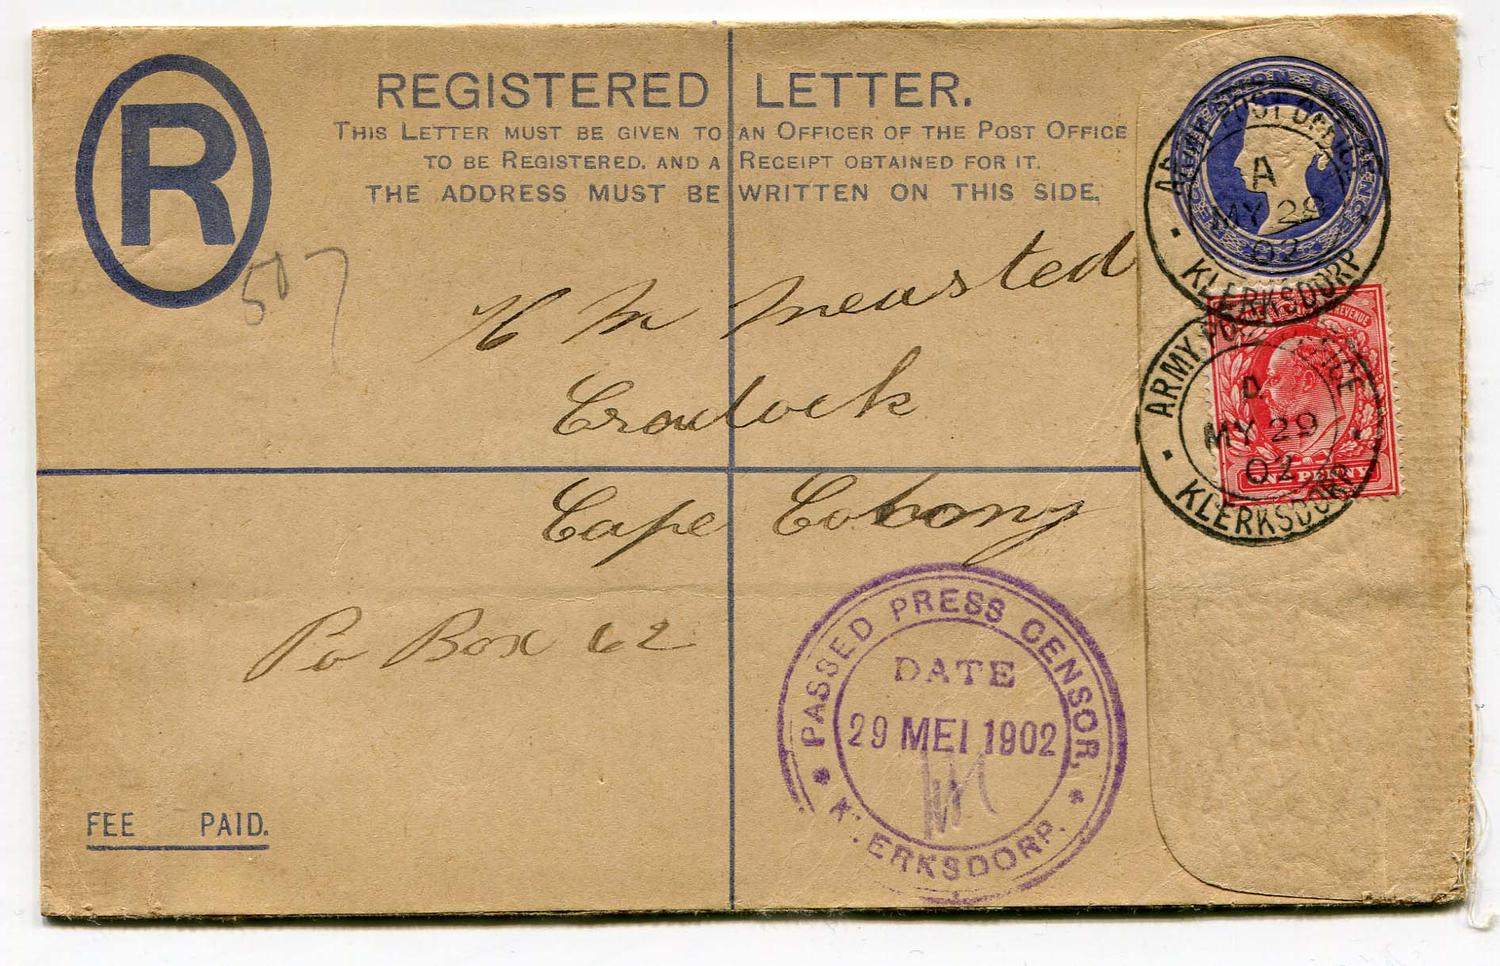 R
REGISTERED LETTER.
THIS LETTER MUST BE GIVEN TO AN OFFICER OF THE POST OFFICE
TO BE REGISTERED, AND A RECEIPT OBTAINED FOR IT.
THE ADDRESS MUST BE WRITTEN ON THIS SIDE.
ARMY POST OFFICE
A
MY 29
02
KLERKSDORP
507
Cradock
Cape Colony
Po Box 62
REVENUE
PENNY
ARMY POST OFFICE
D
MY 29
02
KLERKSDORP
PASSED PRESS CENSOR,
DATE
29 MEI 1902
KLERKSDORP.
FEE PAID.